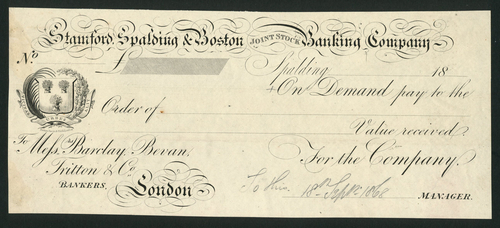 Stamford, Spalding & Boston JOINT STOCK Banking Company
No
£
Spalding 18
On Demand pay to the
Order of
Value received
To Mess. Barclay, Bevan,
Tritton & Co.
BANKERS,
London
For the Company
18th Septr 186
MANAGER.